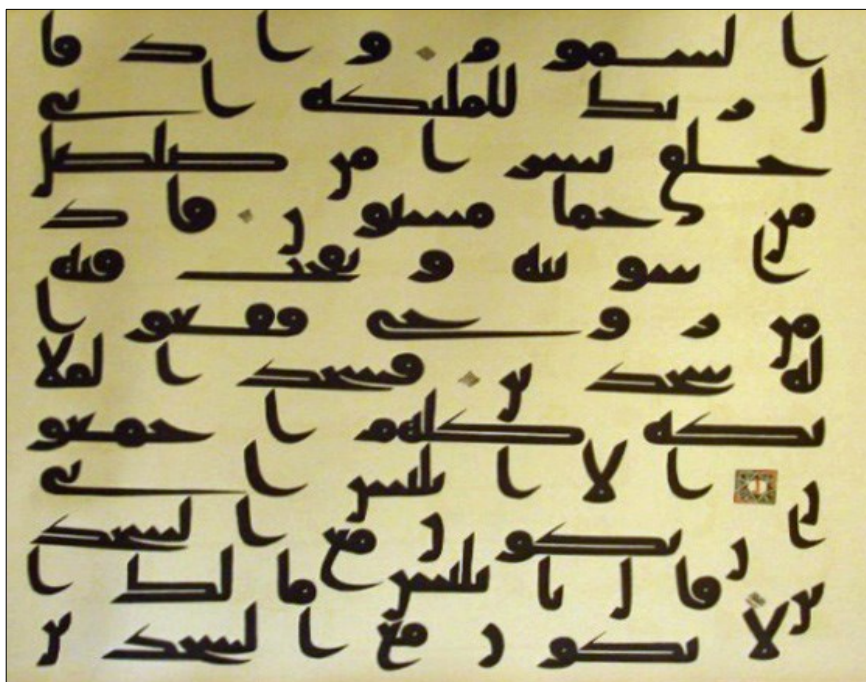 السموم واذ قا
ل ربك للملئكة اني
خلق بشرا من صلصل
من حما مسنون فاذ
ا سويته ونفخت فيه
من روحي فقعوا
له سجدين فسجد ا لملا
ئكة كلهم اجمعو
ن الا ابليس ابى
ان يكون مع السجد
ين قال يابليس ما لك ا
لا تكون مع السجدين